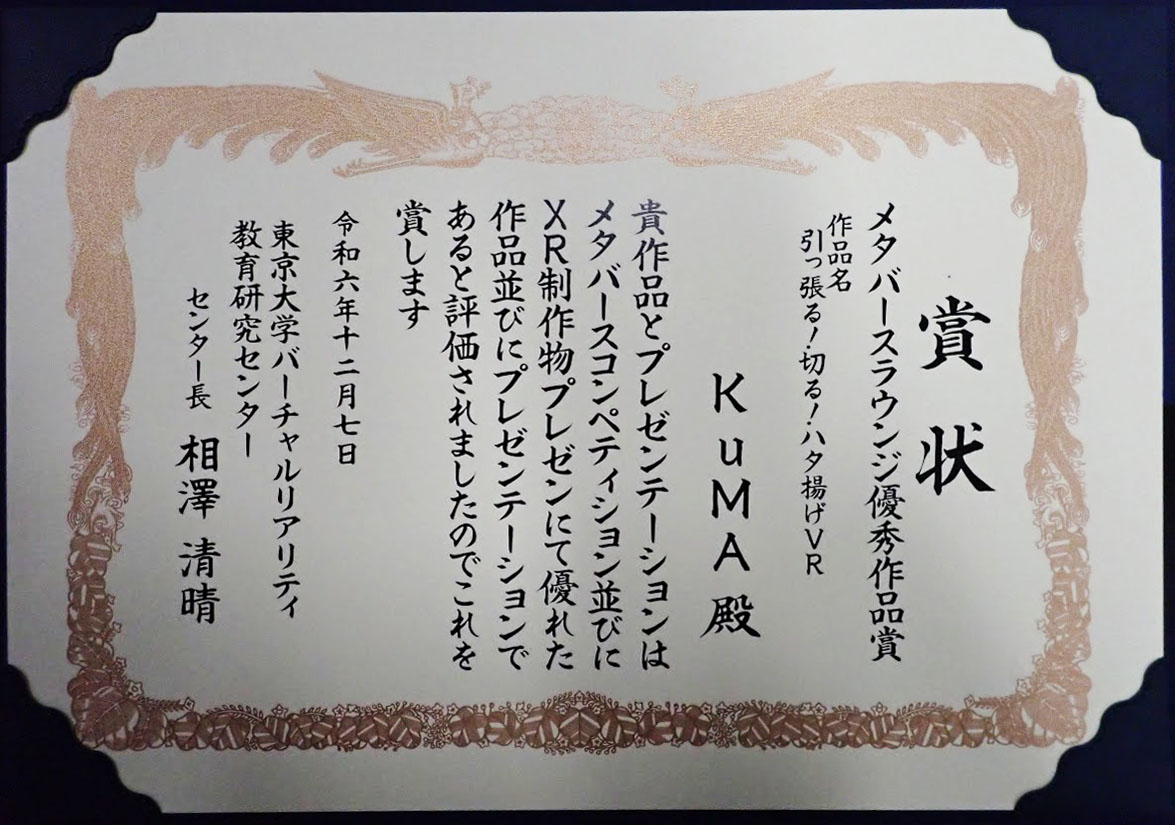 賞状
メタバースラウンジ優秀作品賞
作品名
引っ張る！切る！ハタ揚げVR
KuMA殿
貴作品とプレゼンテーションは
メタバースコンペティション並びに
XR制作物プレゼンにて優れた
作品並びにプレゼンテーションで
あると評価されましたのでこれを
賞します
令和六年十二月七日
東京大学バーチャルリアリティ
教育研究センター
センター長 相澤 清晴